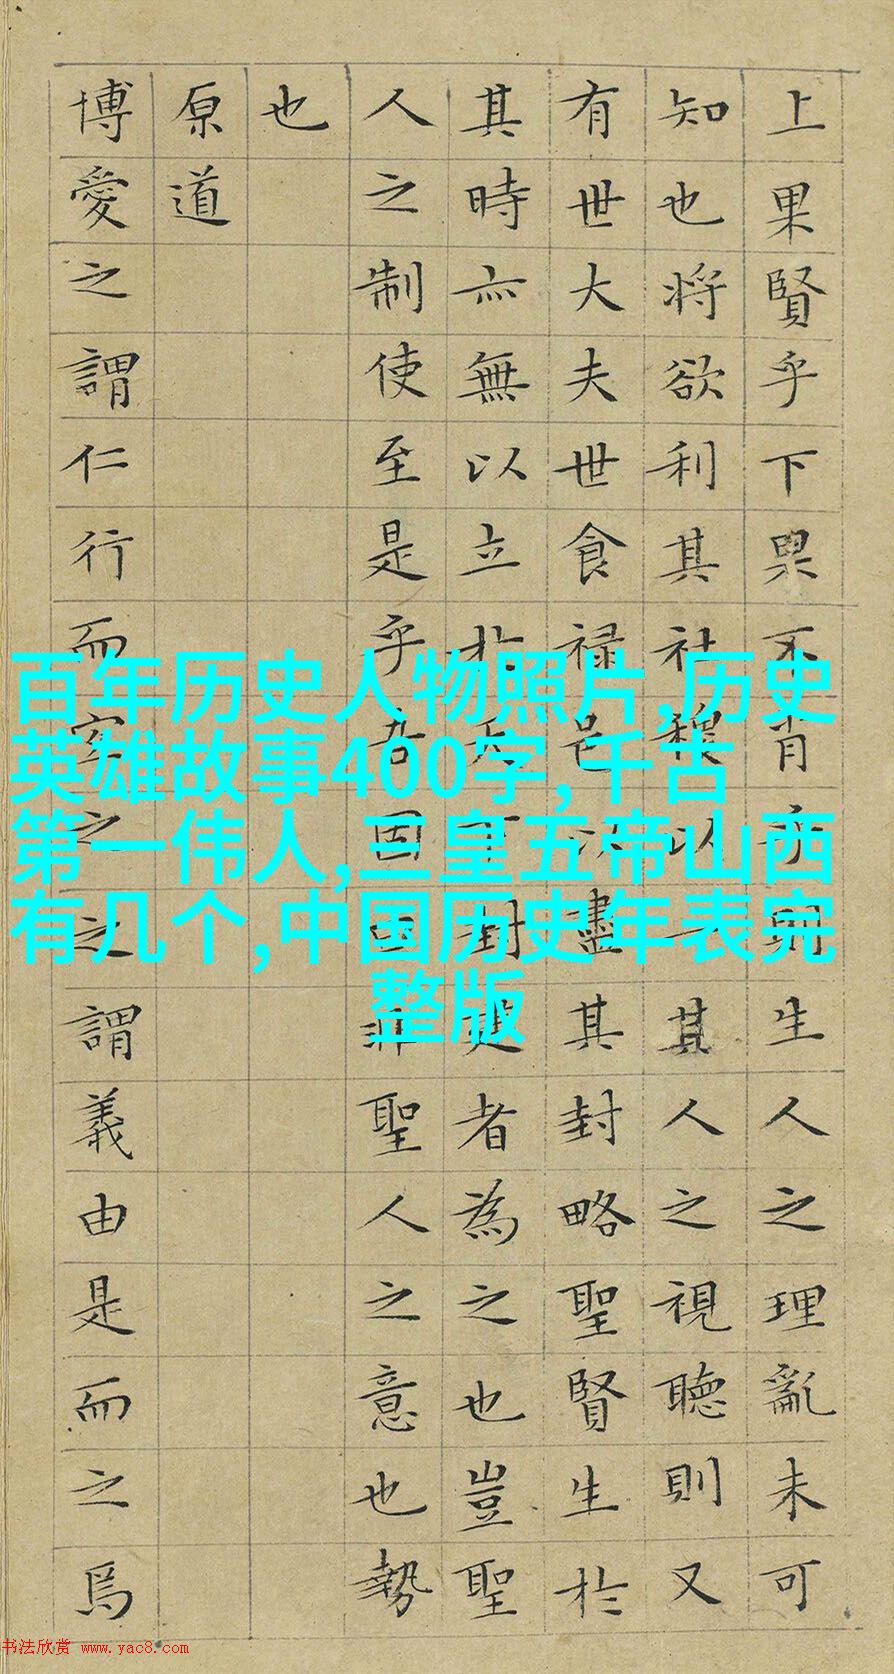 上果賢乎下果不肖乎則生人之理亂未可
知也將欲利其社稷以一其人之視聽則又
有世大夫世食禄邑以盡其封略聖賢生於
其時亦無以立於天下封建者為之也豈聖
人之制使至是乎吾固曰非聖人之意也勢
也
原道
博愛之謂仁行而宜之之謂義由是而之焉
百年历史人物照片,历史
英雄故事400字,千古
第一伟人,三皇五帝山西
有几个,中国历史年表完
整版
书法欣赏 www.yac8.com